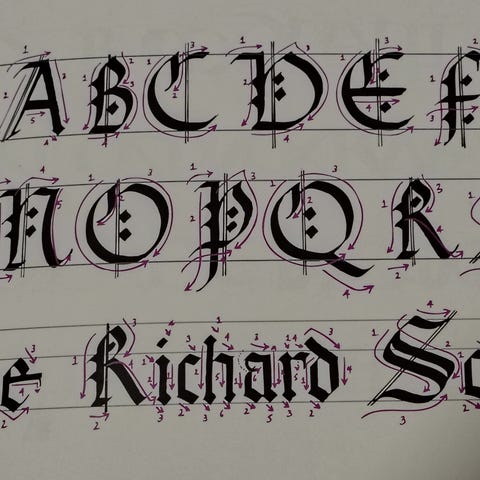 A B C D E F
N O P Q R
e Richard Sc